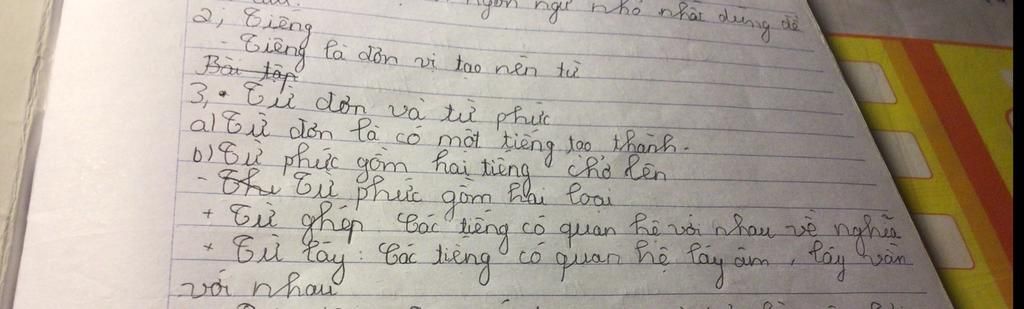 ngôn ngữ nhỏ nhất dùng để
2, Tiếng
- Tiếng là đơn vị tạo nên từ
Bài tập
3, • Từ đơn và từ phức
a) Từ đơn là có một tiếng tạo thành.
b) Từ phức gồm hai tiếng chở lên
- Từ phức gồm hai loại
+ Từ ghép Các tiếng có quan hệ với nhau về nghĩa
+ Từ láy: Các tiếng có quan hệ láy âm, láy vần
với nhau